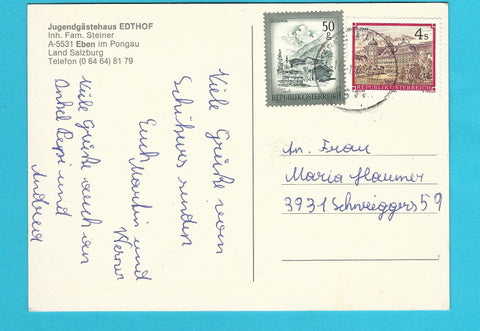 Jugendgästehaus EDTHOF
Inh. Fam. Steiner
A-5531 Eben im Pongau
Land Salzburg
Telefon (0 64 64) 81 79
Viele Grüße vom
Schikurs senden
Euch Martin und
Werner
Viele Grüße auch an
Onkel Pepi und
Andrea
50
REPUBLIK ÖSTERREICH
4 S
REPUBLIK ÖSTERREICH
An Frau
Maria Haumer
3931 Schweiggers 59